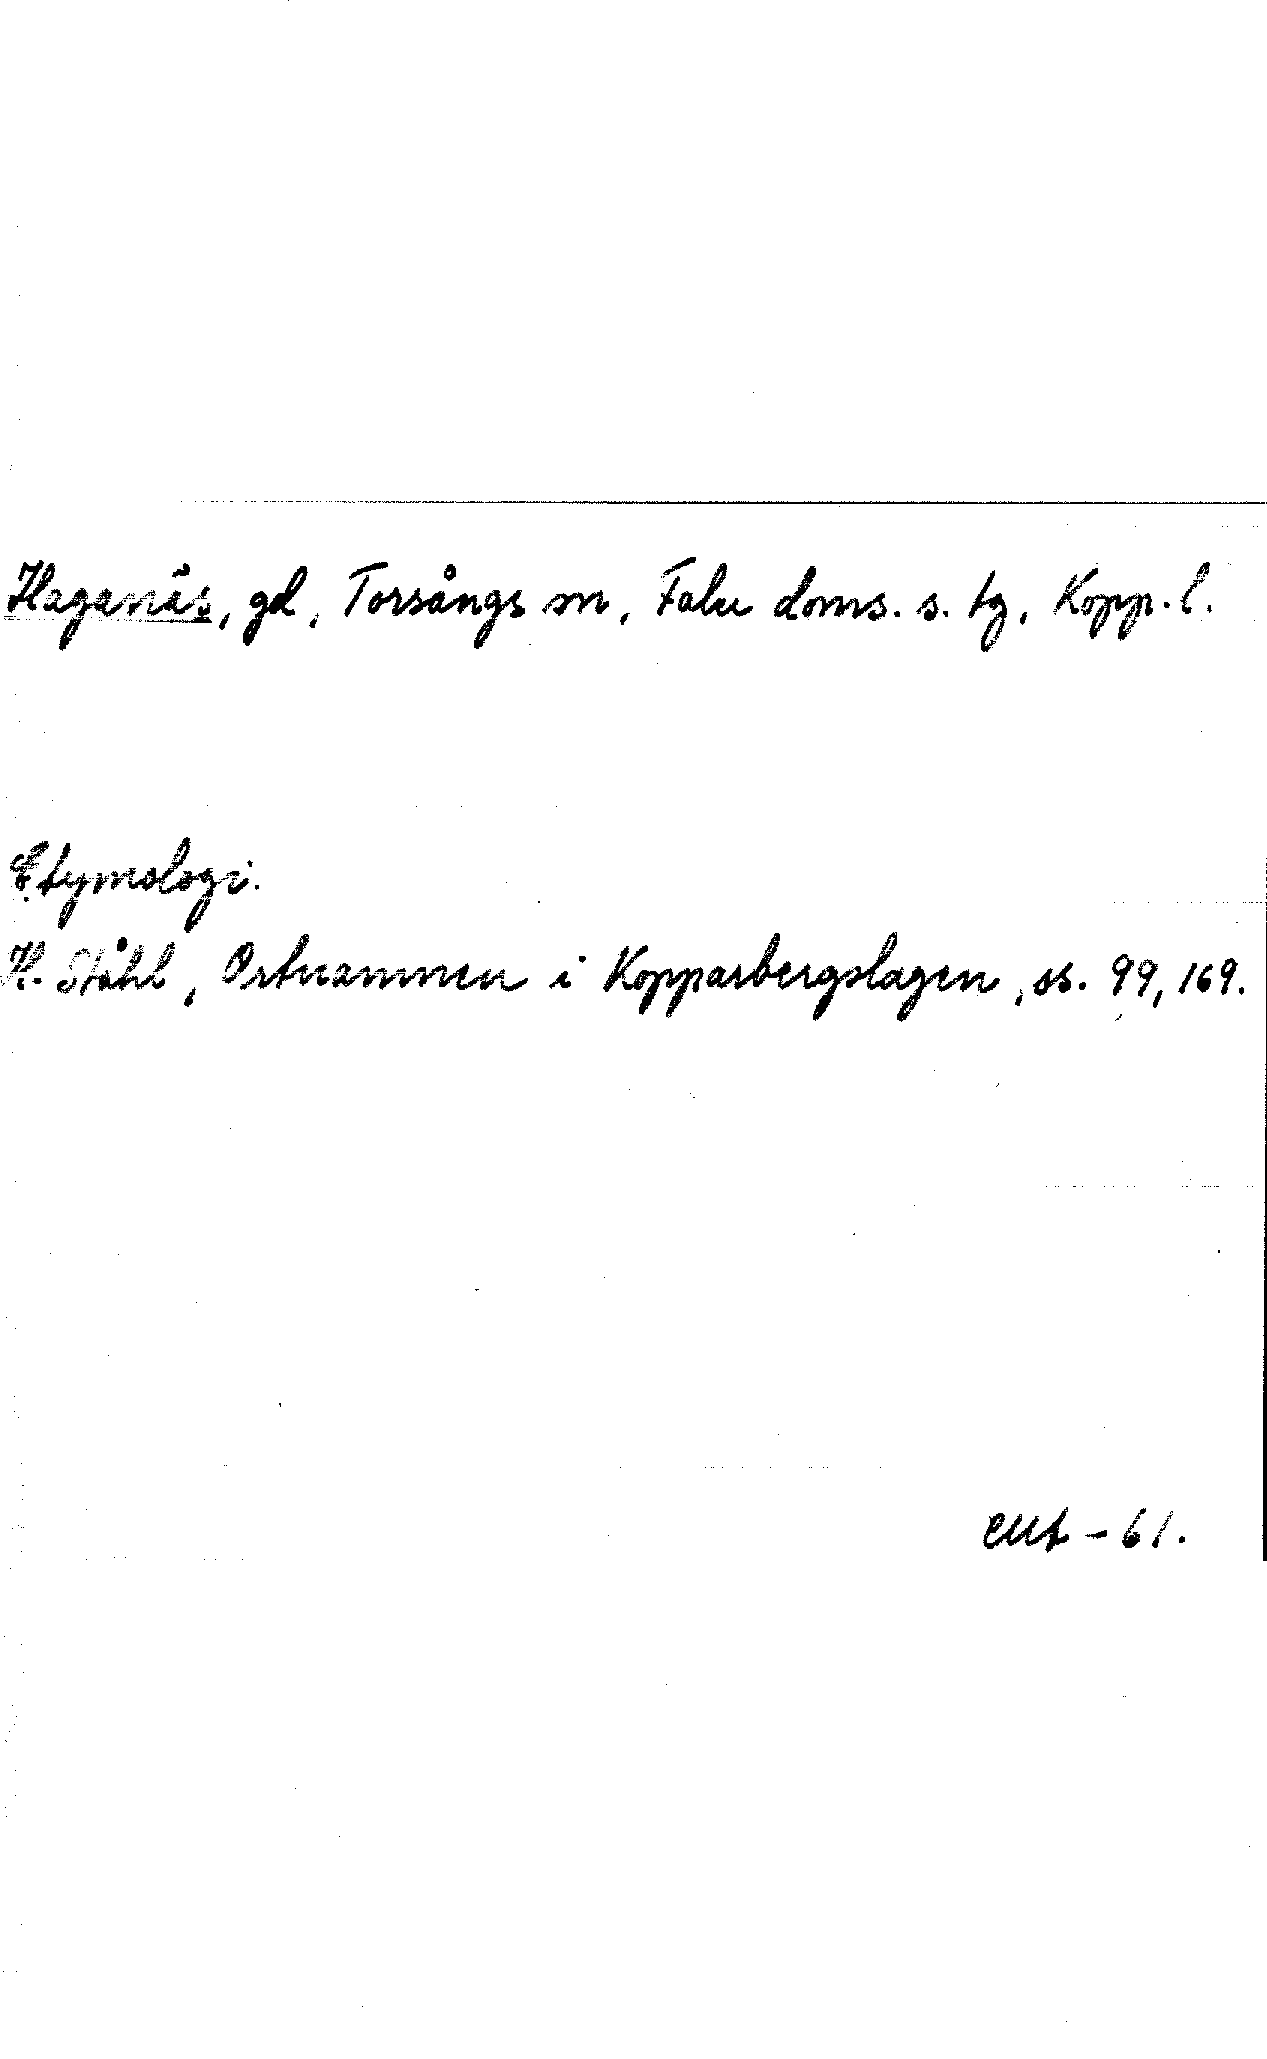 Haganäs, gd, Torsångs sn, Falu doms. s. tg, Kopp. l.
Etymologi.
H. Ståhl, Ortnamnen i Kopparbergslagen, ss. 99, 169.
-61.